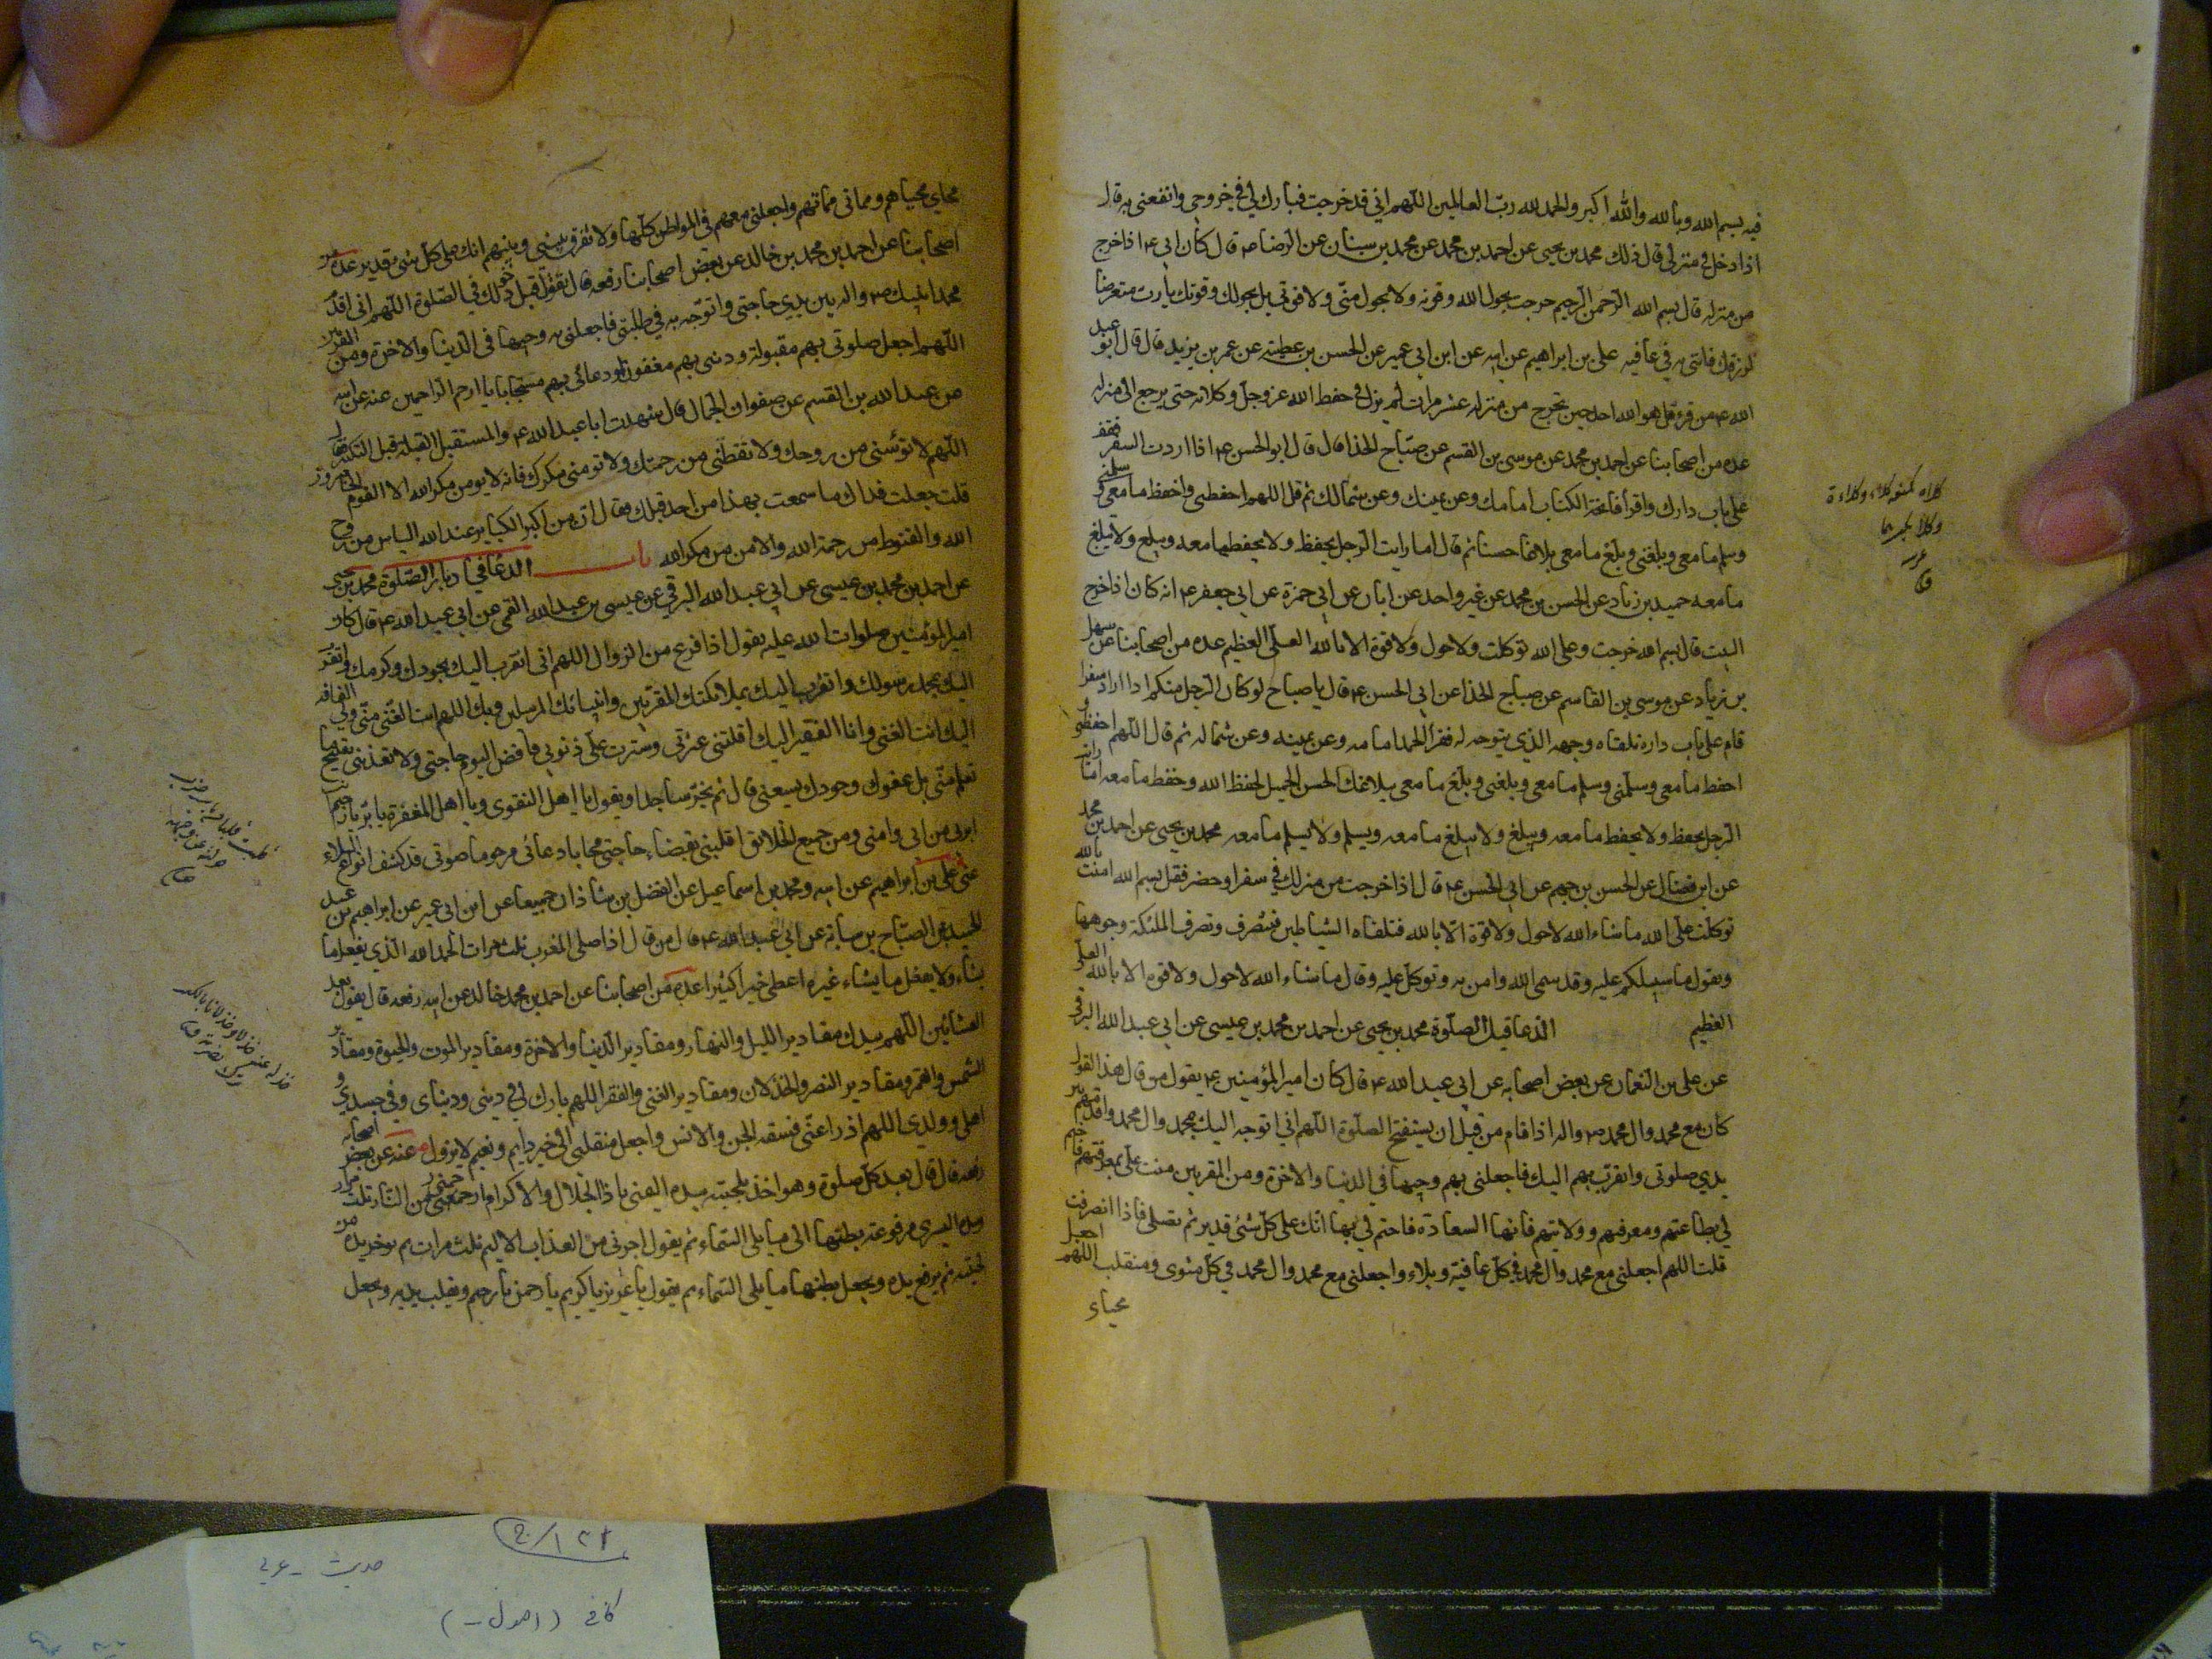 فيه بسم الله وبالله والله اكبر والحمد لله رب العالمين اللهم اني قد خرجت فبارك لي في خروجي وانفعني به قال
اذا دخل في منزله قال ذلك محمد بن يحيى عن احمد بن محمد عن محمد بن سنان عن الرضا ع قال كان ابي ع اذا خرج
من منزله قال بسم الله الرحمن الرحيم خرجت بحول الله وقوته ولا بحول منّي ولا قوتي بل بحولك وقوتك يا رب متعرضا
لرزقك فاتني به في عافيه علي بن ابراهيم عن ابيه عن ابن ابي عمير عن الحسن بن عطيه عن عمر بن يزيد قال قال ابو عبد
الله ع من قرء قل هو الله احد حين يخرج من منزله عشر مرات لم يزل في حفظ الله عز وجل وكلائه حتى يرجع الى منزله
عده من اصحابنا عن احمد بن محمد عن موسى بن القسم عن صباح الحذا قال قال ابو الحسن ع اذا اردت السفر فقف
على باب دارك واقرأ فاتحة الكتاب امامك وعن يمينك وعن شمالك ثم قل اللهم احفظني واحفظ ما معي وسلمني
وسلم ما معي وبلغني وبلغ ما معي بلاغا حسنا ثم قال اما رايت الرجل يحفظ ولا يحفظ ما معه ويبلغ ولا يبلغ
ما معه حميد بن زياد عن الحسن بن محمد عن غير واحد عن ابان عن ابي حمزة عن ابي جعفر ع انه كان اذا خرج
البيت قال بسم الله خرجت وعلى الله توكلت ولا حول ولا قوة الا بالله العلي العظيم عده من اصحابنا عن سهل
بن زياد عن موسى بن القاسم عن صباح الحذا عن ابي الحسن ع قال يا صباح لو كان الرجل منكم اذا اراد سفرا
قام على باب داره تلقاه وجهه الذي يتوجه له فقرا الحمد امامه وعن يمينه وعن شماله ثم قال اللهم احفظني و
احفظ ما معي وسلّمني وسلم ما معي وبلغني وبلّغ ما معي ببلاغك الحسن الجميل لحفظ الله وحفظ ما معه اما رايت
الرجل يحفظ ولا يحفظ ما معه ويبلغ ولا يبلغ ما معه ويسلم ولا يسلم ما معه محمد بن يحيى عن احمد بن محمد
عن ابن فضال عن الحسن بن جهم عن ابي الحسن ع قال اذا خرجت من منزلك في سفر او حضر فقل بسم الله امنت بالله
توكلت على الله ما شاء الله لا حول ولا قوة الّا بالله فتلقاه الشياطين فتصرف وتصرف الملئكة وجوهها
ويقول ما سبيلكم عليه وقد سمى الله وامن به وتوكل عليه وقال ما شاء الله لا حول ولا قوه الا بالله العلي
العظيم الدعا قبل الصلوة محمد بن يحيى عن احمد بن محمد بن عيسى عن ابي عبد الله البرقي
عن علي بن النعمان عن بعض اصحابه عن ابي عبد الله ع قال كان امير المؤمنين ع يقول من قال هذا القول
كان مع محمد وال محمد ص واله اذا قام من قبل ان يستفتح الصلوة اللهم اني اتوجه اليك بمحمد وال محمد واقدمهم بين
يدي صلوتي واتقرب بهم اليك فاجعلني بهم وجيها في الدنيا والاخرة ومن المقربين مننت علي بمعرفتهم فاختم
لي بطاعتهم ومعرفتهم وولايتهم فانها السعادة فاختم لي بها انك على كل شئ قدير ثم تصلى فاذا انصرفت
قلت اللهم اجعلني مع محمد وال محمد في كل عافية وبلاء واجعلني مع محمد وال محمد في كل مثوى ومنقلب اللهم اجعل
محياي
محياي محياهم ومماتى مماتهم واجعلني معهم في المواطن كلها ولا تفرق بيني وبينهم انك على كل شئ قدير عده من
اصحابنا عن احمد بن محمد بن خالد عن بعض اصحابنا رفعه قال تقول قبل دخولك في الصلوة اللهم اني اقدم
محمدا نبيك ص واله بين يدي حاجتي واتوجه به في طلبتي فاجعلني به وجيها في الدنيا والاخرة ومن المقربين
اللهم اجعل صلوتي بهم مقبولة وذنبي بهم مغفورا ودعائي بهم مستجابا يا ارحم الراحمين عنه عن ابيه
عن عبد الله بن القسم عن صفوان الجمال قال شهدت ابا عبد الله ع واستقبل القبلة قبل التكبير قال
اللهم لا تؤنسني من روحك ولا تقنطني من رحمتك ولا تومني مكرك فانه لا يومن مكر الله الا القوم الخاسرون
قلت جعلت فداك ما سمعت بهذا من احد قبلك فقال ان من اكبر الكبائر عند الله الياس من روح
الله والقنوط من رحمة الله والامن من مكر الله باب الدعا في ادبار الصلوة محمد بن يحيى
عن احمد بن محمد بن عيسى عن ابي عبد الله البرقي عن عيسى بن عبد الله القمي عن ابي عبد الله ع قال كان
امير المؤمنين صلوات الله عليه يقول اذا فرغ من الزوال اللهم اني اتقرب اليك بجودك وكرمك واتقرب
اليك بمحمد رسولك واتقرب اليك بملائكتك المقربين وانبيائك المرسلين وبك اللهم انت الغني عني وبي الفاقه
اليك انت الغني وانا الفقير اليك اقلتني عثرتي وسترت علي ذنوبي فاقض اليوم حاجتي ولا تعذبني بقبيح ما
تعلم منّي بل عفوك وجودك يسعني قال ثم يخرّ ساجدا ويقول يا اهل التقوى ويا اهل المغفرة يا برّ يا رحيم انت
ابر بي من ابي وامي ومن جميع الخلائق اقلبني بقضاء حاجتي مجابا دعائي مرحوما صوتي قد كشف انواع البلاء
عني علي بن ابراهيم عن ابيه ومحمد بن اسماعيل عن الفضل بن شاذان جميعا عن ابن ابي عمير عن ابراهيم بن عبد
الحميد عن الصباح بن سيابة عن ابي عبد الله ع قال من قال اذا صلى المغرب ثلث مرات الحمد لله الذي يفعل ما
يشاء ولا يفعل ما يشاء غيره اعطي خيرا كثيرا عده من اصحابنا عن احمد بن محمد خالد عن ابيه رفعه قال يقول بعد
العشائين اللهم بيدك مقادير الليل والنهار ومقادير الدنيا والاخرة ومقادير الموت والحيوة ومقادير
الشمس والقمر ومقادير النصر والخذلان ومقادير الغنى والفقر اللهم بارك لي في ديني ودنياى وفي جسدي و
اهلي وولدي اللهم ادرا عنّي فسقه الجن والانس واجعل منقلبي الى خير دايم ونعيم لا يزول عنه عن بعض اصحابه
رفعه قال قال بعد كل صلوة وهو اخذ بلحيته بيده اليمنى يا ذا الجلال والاكرام ارحمني من النار ثلث مرات
ويده اليسرى مرفوعة بطنها الى ما يلي السماء ثم يقول اجرني من العذاب الاليم ثلث مرات ثم يوخر يده عن
لحيته ثم يرفع يده ويجعل بطنها مما يلي السماء ثم يقول يا عزيز يا كريم يا رحمن يا رحيم ويقلب يديه ويجعل
حديث - عربي
كافي (اصول -)